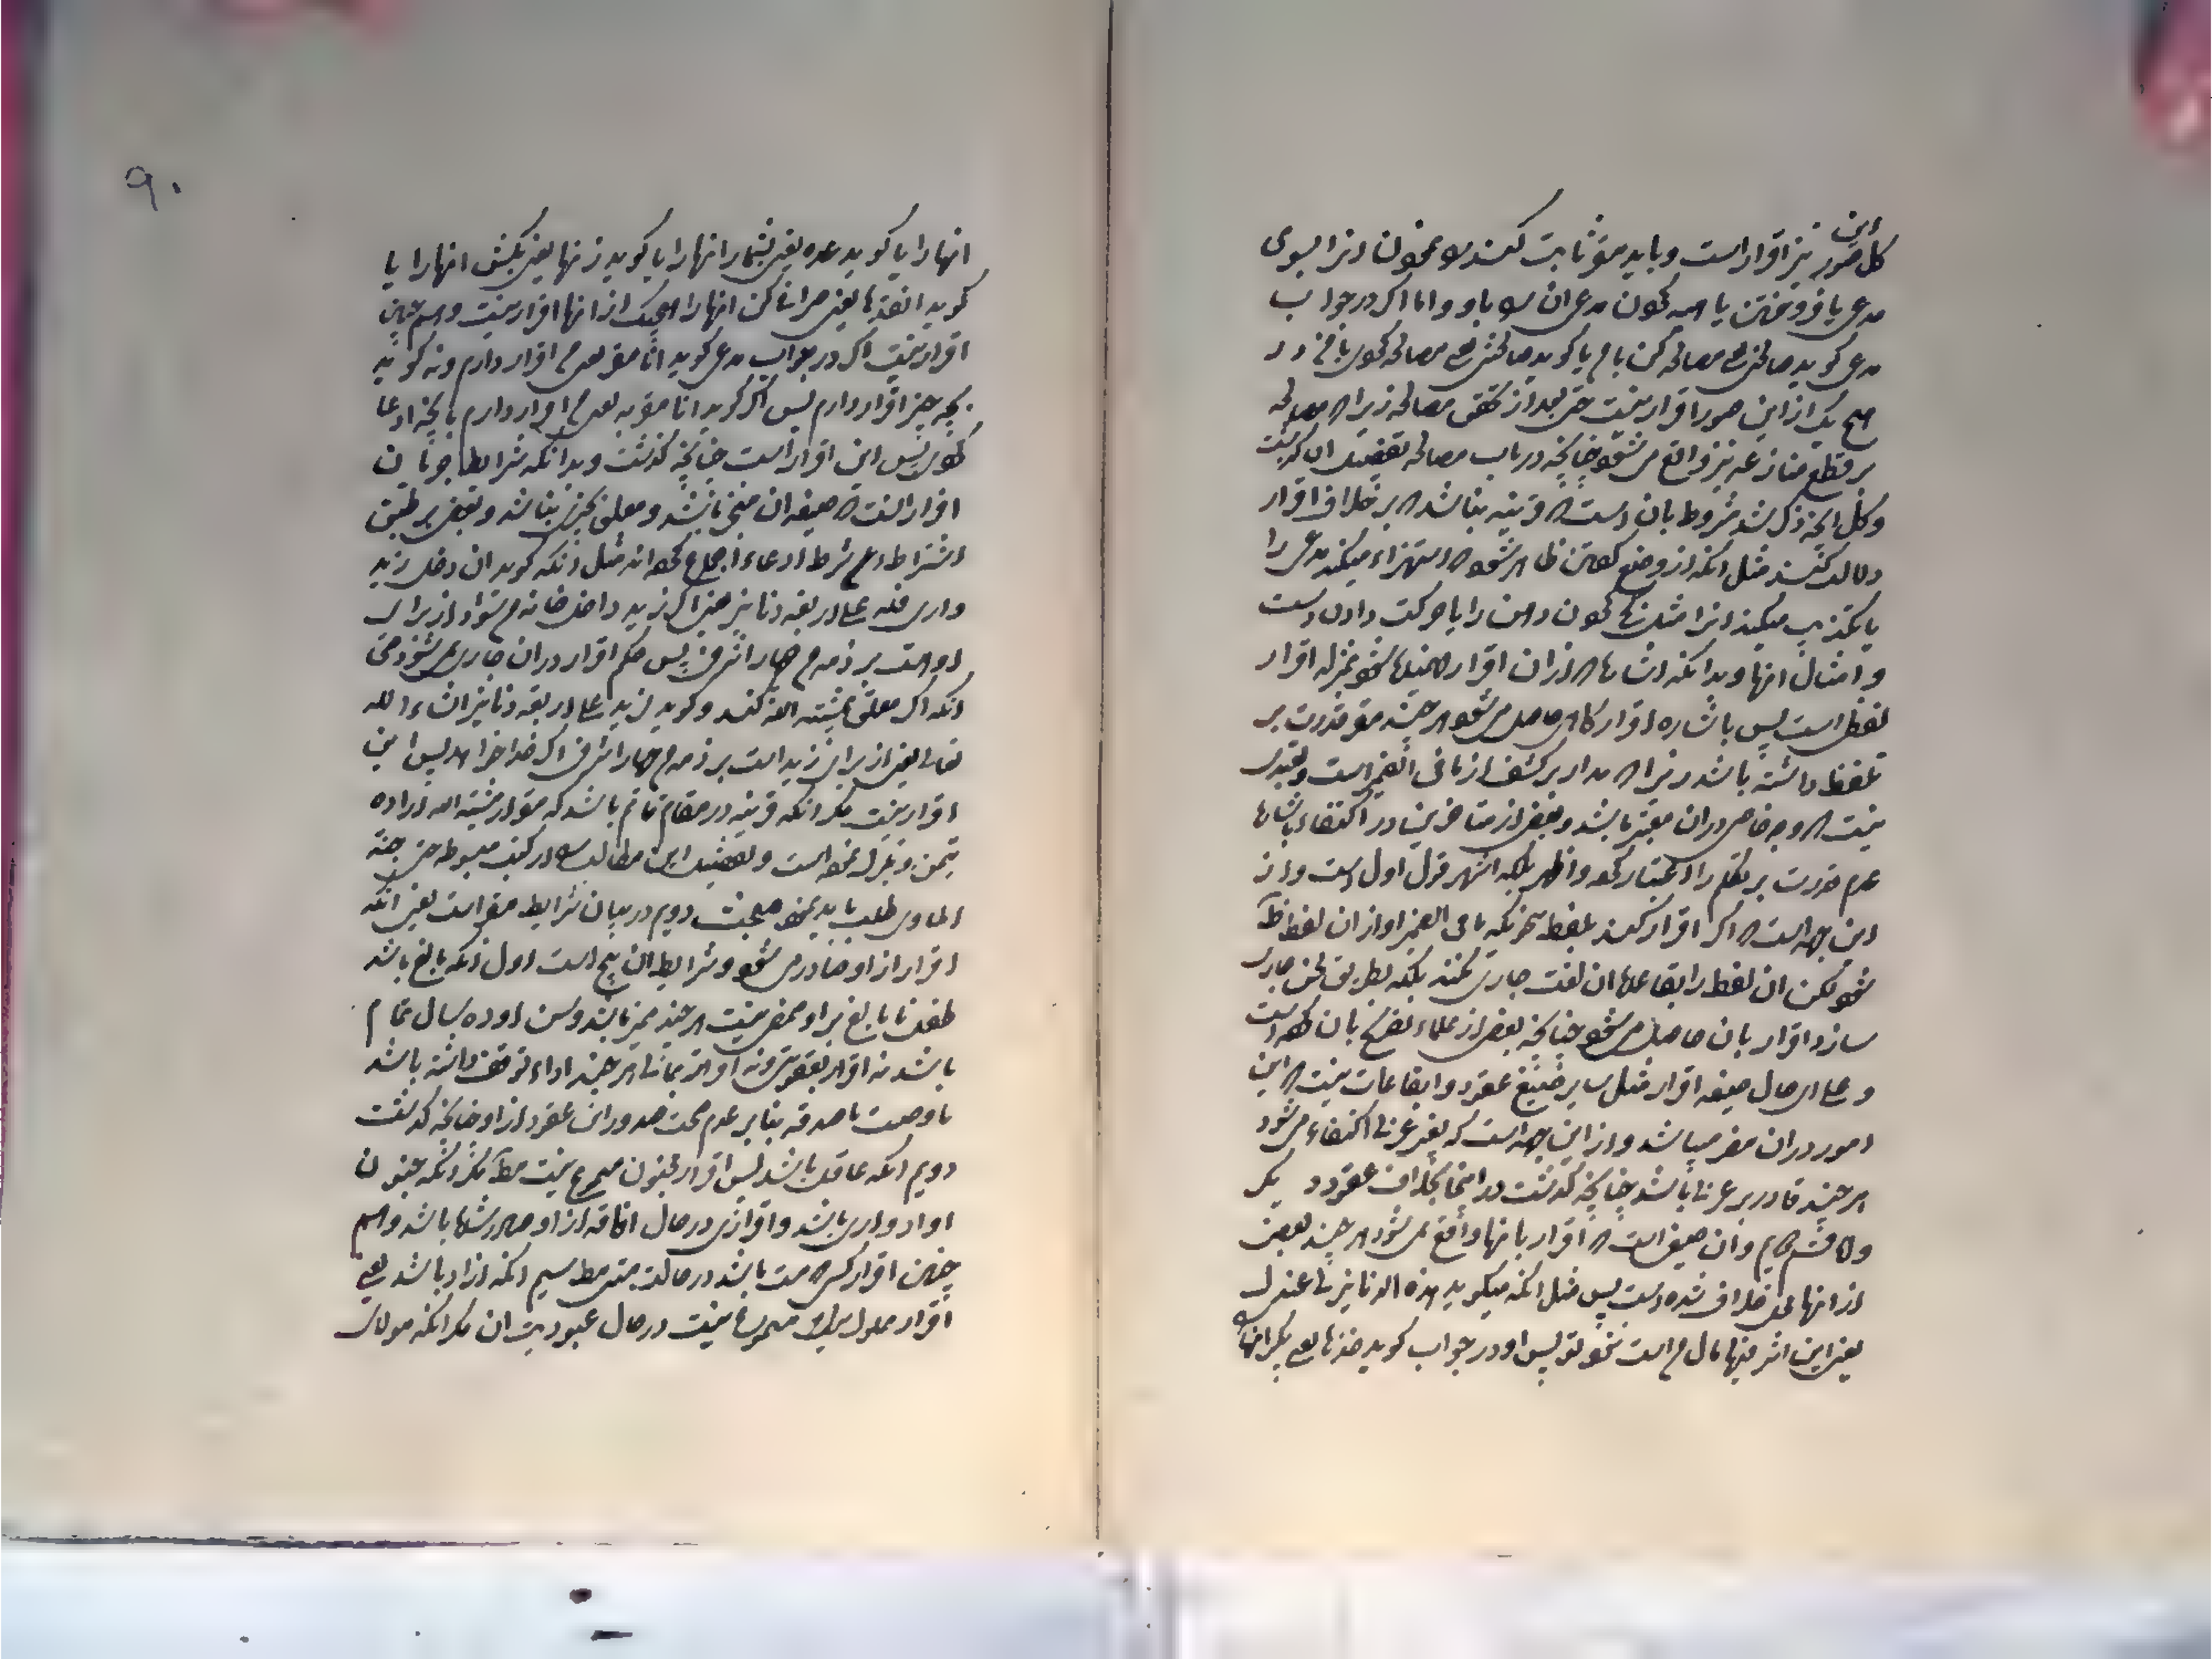 این
کل صور نیز اقرار است و باید مقر ثابت کند
مدعی یا فروختن یا هبه نمودن مدعی ان را باو و اما اگر در جواب
مدعی کوید صالحنی یعنی مصالحه کن با من یا کوید
هیچ یک از این صور اقرار نیست حتی بعد از تحقق مصالحه زیرا که مصالحه
بر قطع منازعه نیز واقع می شود چنانچه در باب مصالحه تفصیل ان گذشت
و کل انچه ذکر شد مشروط بان است که قرینه نباشد که بر خلاف اقرار
دلالت کند مثل انکه از وضع گفتن ظاهر شود که استهزاء میکند مدعی را
یا تکذیب میکند انرا مثل نمودن دهن را با حرکت دادن دست
و امثال انها و بدانکه اشاره که از ان اقرار فهمیده شود بمنزله اقرار
لفظی است پس باشاره اقرار کاهی حاصل می شود هر چند مقر قدرت بر
تلفظ داشته باشد زیرا که مدار بر کشف از ما فی الضمیر است و لفظ
نیست که وجه خاص در ان معتبر باشد و بعضی از متاخرین در اکتفاء باشاره
عدم قدرت بر تکلم را اعتبار کرده و اظهر بلکه اشهر قول اول است و از
این جهه است که اگر اقرار کند بلفظ نحویکه ما فی الضمیر او از ان لفظ ظاهر
شود لکن ان لفظ را بقاعده ان لغت جاری نکند بلکه بطریق لحن جاری
سازد اقرار بان حاصل می شود چنانچه بعضی از علماء تصریح بان کرده است
و علی ای حال صیغه اقرار مثل سایر صیغ عقود و ایقاعات نیست که این
امور در ان مضر میباشد و از این جهه است که بغیر عربی اکتفاء می شود
هر چند قادر بر عربی باشد چنانچه گذشت در اینجا بخلاف عقود دیکر
و اما قسم دیم و ان صیغی است که اقرار بانها واقع نمی شود هر چند بعضی
از انها محل خلاف شده است پس مثل انکه میکوید هذه الدنانیر لی عندک
یعنی این اشرفیها مال من است نزد تو پس او در جواب کوید خذها یعنی بگیر انها
۹۰
انها را یا کوید عده یعنی بشمار انها را یا کوید زنها یعنی بکش انها را یا
کوید انقدها یعنی صرافی کن انها را هیچیک از انها اقرار نیست و هم چنین
اقرار نیست اگر در جواب مدعی کوید انا مقر یعنی من اقرار دارم و نه کوید
بچه چیز اقرار دارم پس اگر کوید انا مقر به یعنی من اقرار دارم بانچه ادعا
کردی پس این اقرار است چنانچه گذشت و بدانکه شرایط جریان
اقرار انست که صیغه ان منجز باشد و معلق بچیزی نباشد و بعضی بر طبق
اشتراط این شرط ادعاء اجماع کرده اند مثل انکه کوید ان دخل زید
داری فله علی اربعه دنانیر یعنی اگر زید داخل خانه من شود از برای
او است بر ذمه من چهار اشرفی پس حکم اقرار در ان جاری نمی شود حتی
انکه اگر معلق بمشیته الله کند و کوید لزید علی اربعه دنانیر انشاء الله
تعالی یعنی از برای زید است بر ذمه من چهار اشرفی اگر خدا خواهد پس این
اقرار نیست مکر انکه قرینه در مقام قائم باشد که مقر از مشیته الله اراده
تیمن و تبرک نموده است و تفصیل این مطالب را در کتب مبسوطه
طلب باید نمود مبحث دویم در بیان شرایط مقر است یعنی انکه
اقرار از او صادر می شود و شرایط ان پنج است اول انکه بالغ باشد
طفل نا بالغ بر او ممضی نیست هر چند ممیز باشد و سن او ده سال تمام
باشد نه اقرار بعقوبتی و نه اقرار بمالی هر چند اداء توقف داشته باشد
یا وصیت یا صدقه بنا بر عدم صحت صدور این عقود از او چنانچه گذشت
دویم انکه عاقل باشد پس اقرار مجنون مسموع نیست مطلقا مکر انکه جنون
او ادواری باشد و اقراری در حال افاقه از او صادر شده باشد و هم
چنین اقرار کسی که مست باشد در حالت مستی مطلقا سیم انکه ازاد باشد یعنی
اقرار مملوک مسموع نیست در حال عبودیت ان مکر انکه مولای